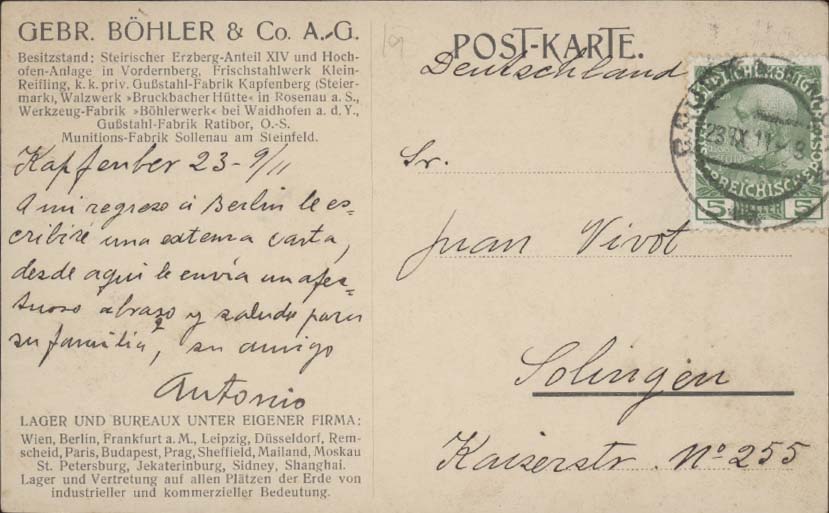 GEBR. BÖHLER & Co. A.-G.
Besitzstand: Steirischer Erzberg-Anteil XIV und Hoch-
ofen-Anlage in Vordernberg, Frischstahlwerk Klein-
Reifling, k. k. priv. Gußstahl-Fabrik Kapfenberg (Steier-
mark), Walzwerk »Bruckbacher Hütte« in Rosenau a. S.,
Werkzeug-Fabrik »Böhlerwerk« bei Waidhofen a. d. Y.,
Gußstahl-Fabrik Ratibor, O.-S.
Munitions-Fabrik Sollenau am Steinfeld.
Kapfenber 23-9/11
A mi regreso á Berlin le es-
cribiré una extensa carta,
desde aqui le envia un afec-
tuoso abrazo y saludos para
su familia, su amigo
Antonio
LAGER UND BUREAUX UNTER EIGENER FIRMA:
Wien, Berlin, Frankfurt a. M., Leipzig, Düsseldorf, Rem-
scheid, Paris, Budapest, Prag, Sheffield, Mailand, Moskau
St. Petersburg, Jekaterinburg, Sidney, Shanghai.
Lager und Vertretung auf allen Plätzen der Erde von
industrieller und kommerzieller Bedeutung.
19
POST-KARTE.
Deutschland
Sr.
Juan Vivot
Solingen
Kaiserstr. Nº 255
23 IX 11 8
5 5